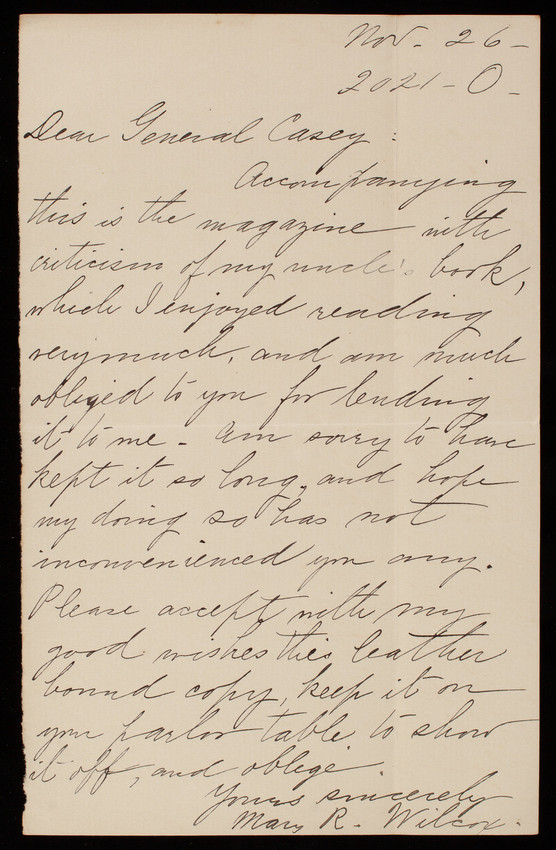 Nov. 26 -
2021 - O -
Dear General Casey:
Accompanying
this is the magazine with
criticism of my uncle's book,
which I enjoyed reading
very much, and am much
obliged to you for lending
it to me - Am sorry to have
kept it so long, and hope
my doing so has not
inconvenienced you any.
Please accept with my
good wishes this leather
bound copy, keep it on
your parlor table to show
it off, and oblige
Yours sincerely
Mary R. Wilcox.